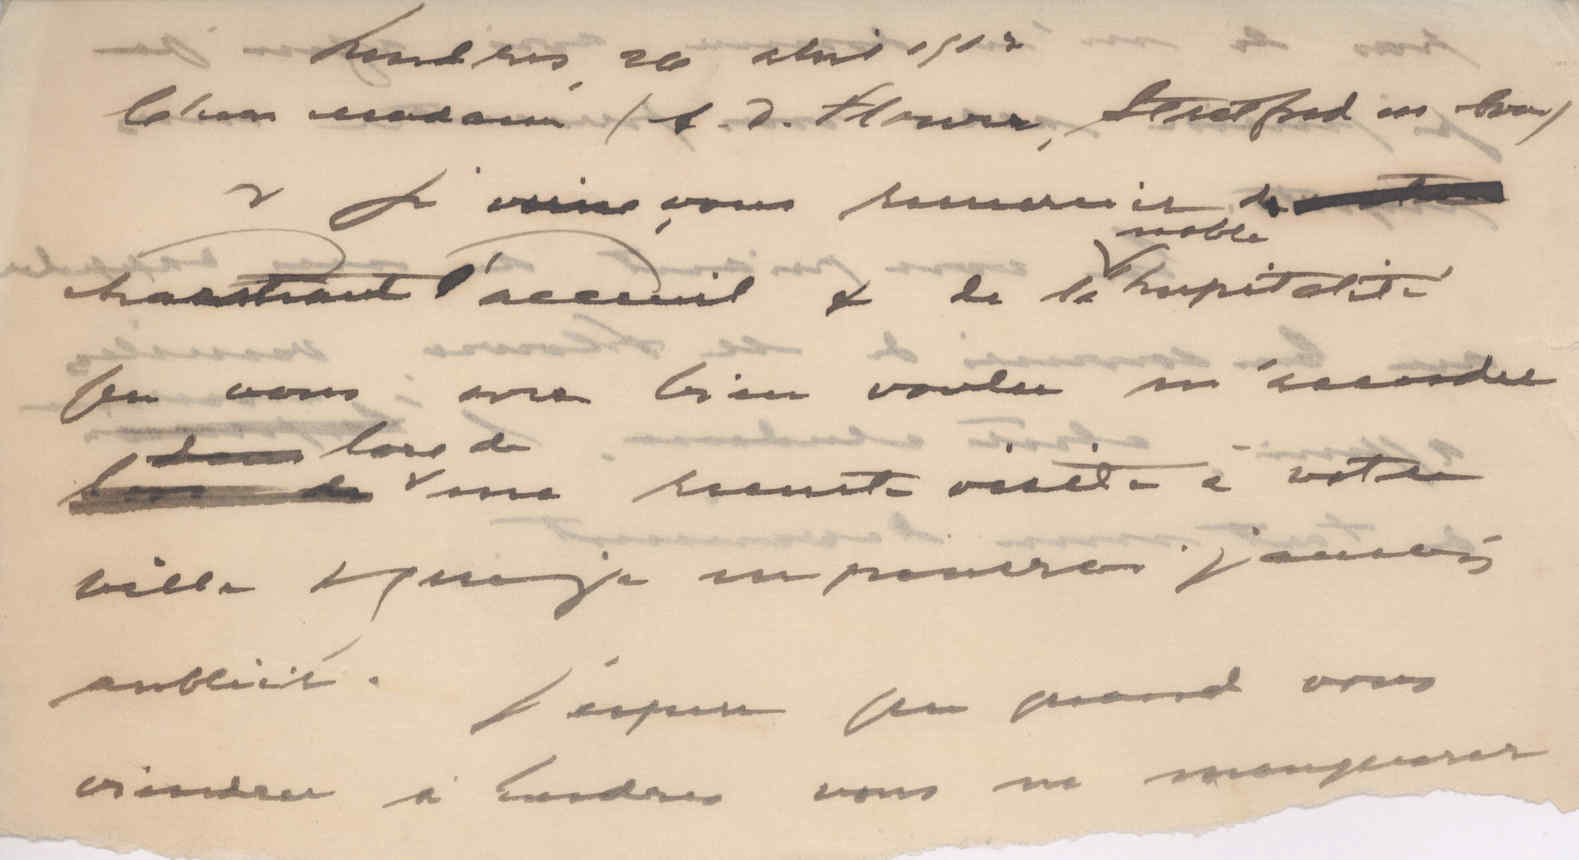 Londres, 20 abril 1912
Chère madame (A. D. Flower, Stratford on Avon)
Je viens vous remercier de
noble
charmant l'accueil & de la hospitalité
que vous avez bien voulu m'accorder
lors de
ma récente visite à votre
ville & que je ne pourrai jamais
oublier. J'espère que quand vous
viendrez à Londres vous ne manquerez